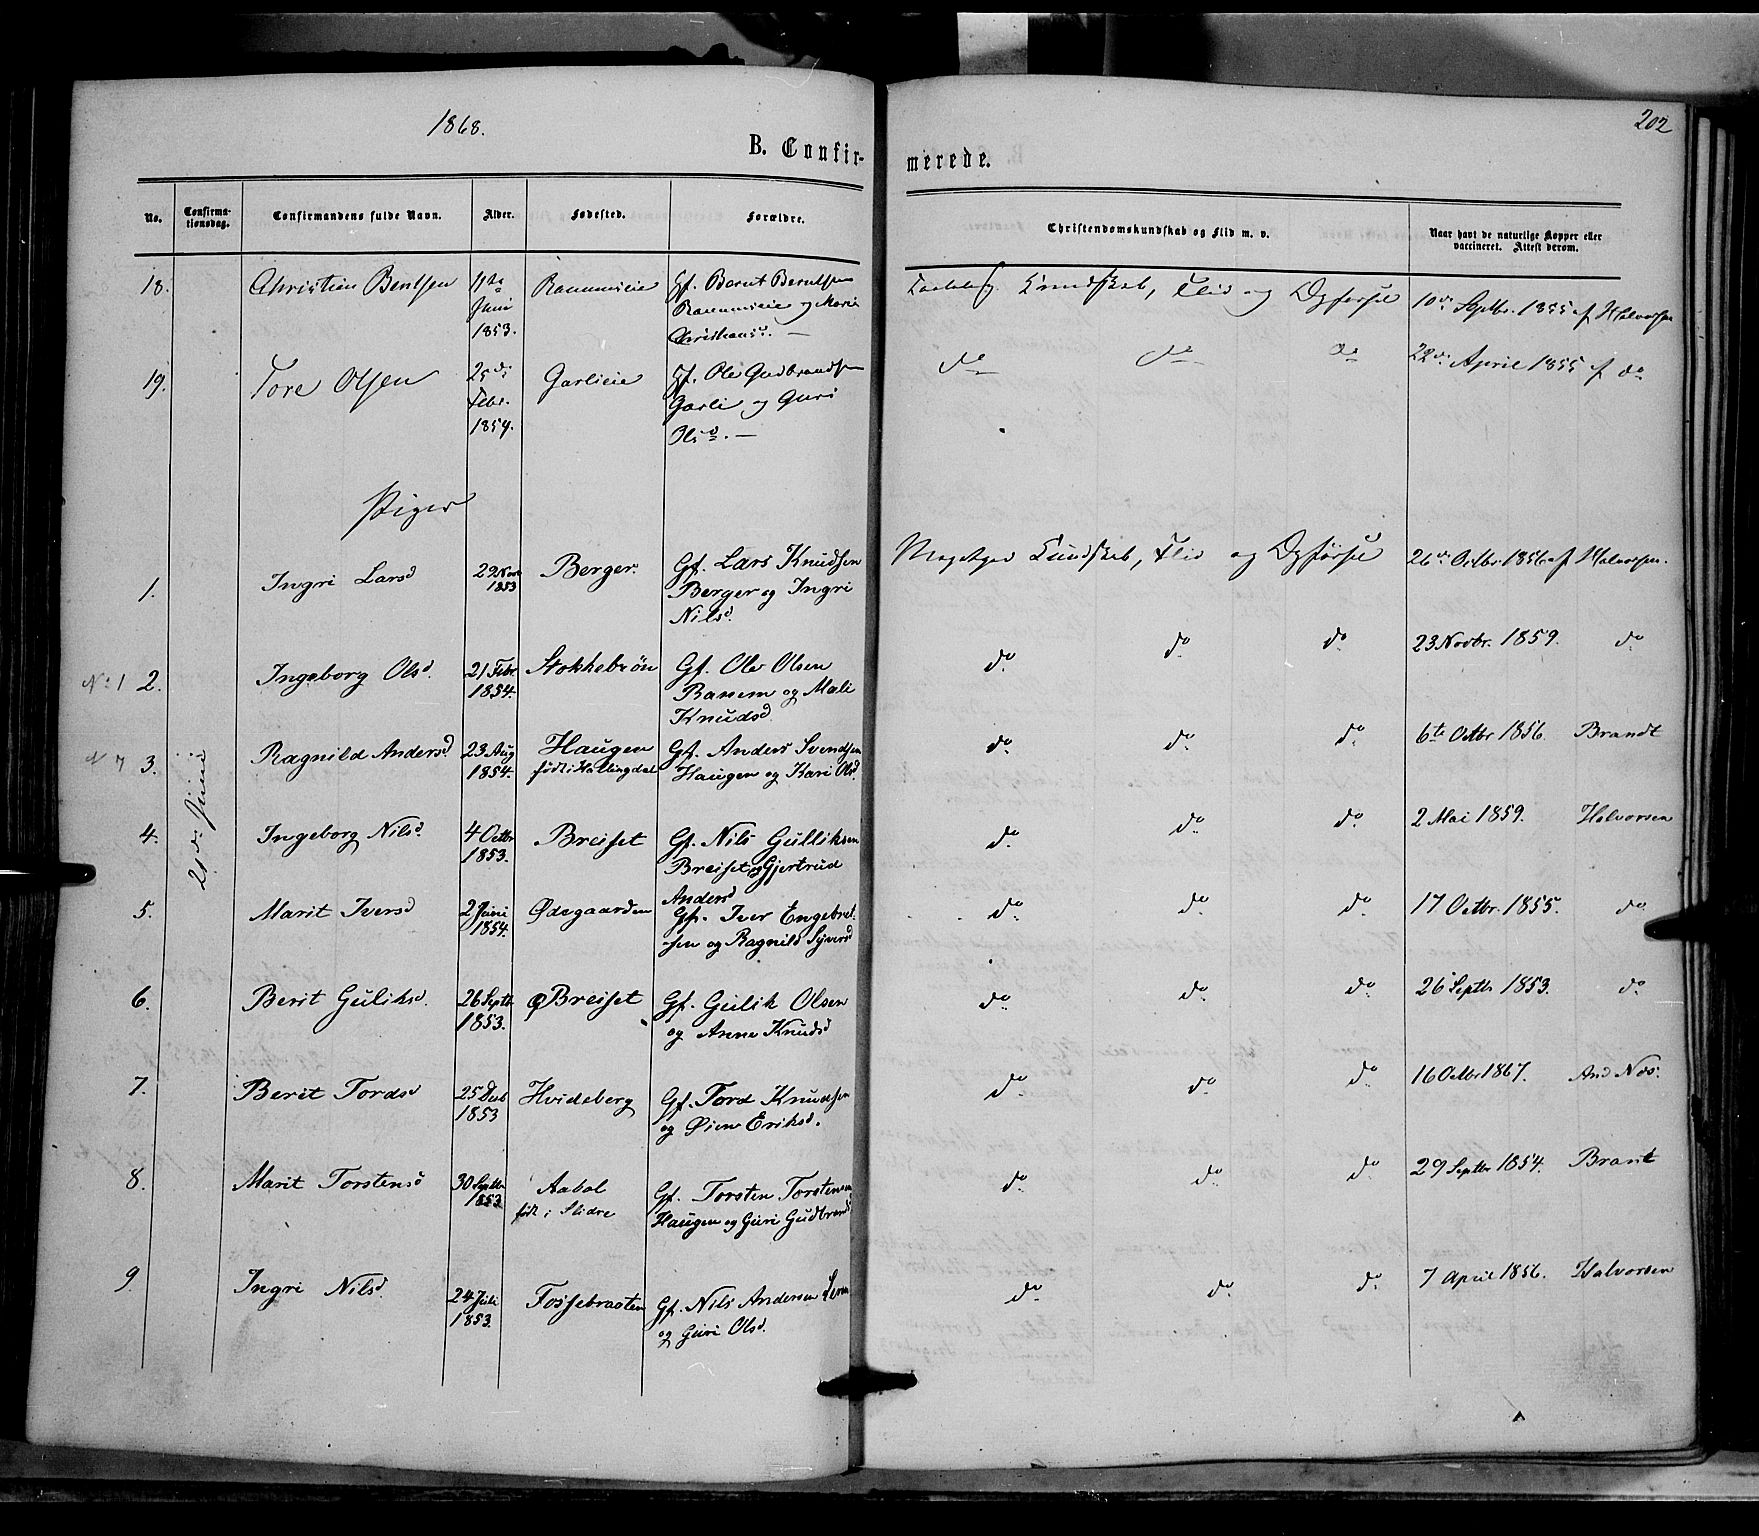 1868.
202
B. Confir-
merede.
No.
Confirma-
tionsdag.
Confirmandens fulde Navn.
Alder.
Fødested.
Forældre.
Christendomskundskab og Flid m. v.
Naar havt de naturlige Kopper eller
vaccineret. Attest derom.
18.
Christian Bentsen
11te
Juni
1853.
Gf. Bernt Berntsen
og Marie
Christiansd. —
Kundskab, Flid og Opførsel
10de Septbr. 1855 af Halvorsen
19.
Tore Olsen
25de
Febr.
1854.
Garlieie
Gf. Ole Gudbrandsen
Garli og Guri
Olsd. —
do do do
22de April 1855 af do
Piger
21de Juni
1.
Ingri Larsd
29 Novb
1853
Berger.
Gf. Lars Knudsen
Berger og Ingri
Nilsd.
Megetgod Kundskab, Flid og Opførsel
26de Octbr. 1856 af Halvorsen.
No 1 2.
Ingeborg Olsd.
21 Febr.
1854.
Stokkebrøn
Gf. Ole Olsen
og Mali
Knudsd.
do do do
23 Novbr. 1859. do
3.
Ragnild Andersd
23 Aug
1854.
Haugen
født i Hallingdal
Gf. Anders Svendsen
Haugen og Kari Olsd.
do do do
6te Octbr 1856. Brandt
4.
Ingeborg Nilsd.
4 Octbr
1853.
Breiset
Gf. Nils Gulliksen
Breiset og Gjertrud
Andersd
do do do
2 Mai 1859. Halvorsen
5.
Marit Iversd
2 Juni
1854.
Ødegaarden
Gf. Iver Engebret-
sen og Ragnild Syversd
do do do
17 Octbr. 1855. do
6.
Berit Guliksd.
26 Septb.
1853.
Ø Breiset
Gf. Gulik Olsen
og Anne Knudsd
do do do
26 Septbr 1853. do
7.
Berit Tordsd
25 Decb
1853
Hvideberg
Gf. Tord Knudsen
og Øien Eriksd.
do do do
16 Octbr 1867. And Næs.
8.
Marit Torstensd
30 Septbr
1853
Aabol
født i Slidre
Gf. Torsten Torstensen
Haugen og Guri Gudbrandsd
do do do
29 Septbr 1854. Brant
9.
Ingri Nilsd.
24 Juli
1853.
Fossebraaten
Gf. Nils Andersen
og Guri Olsd.
do do do
7 April 1856. Halvorsen